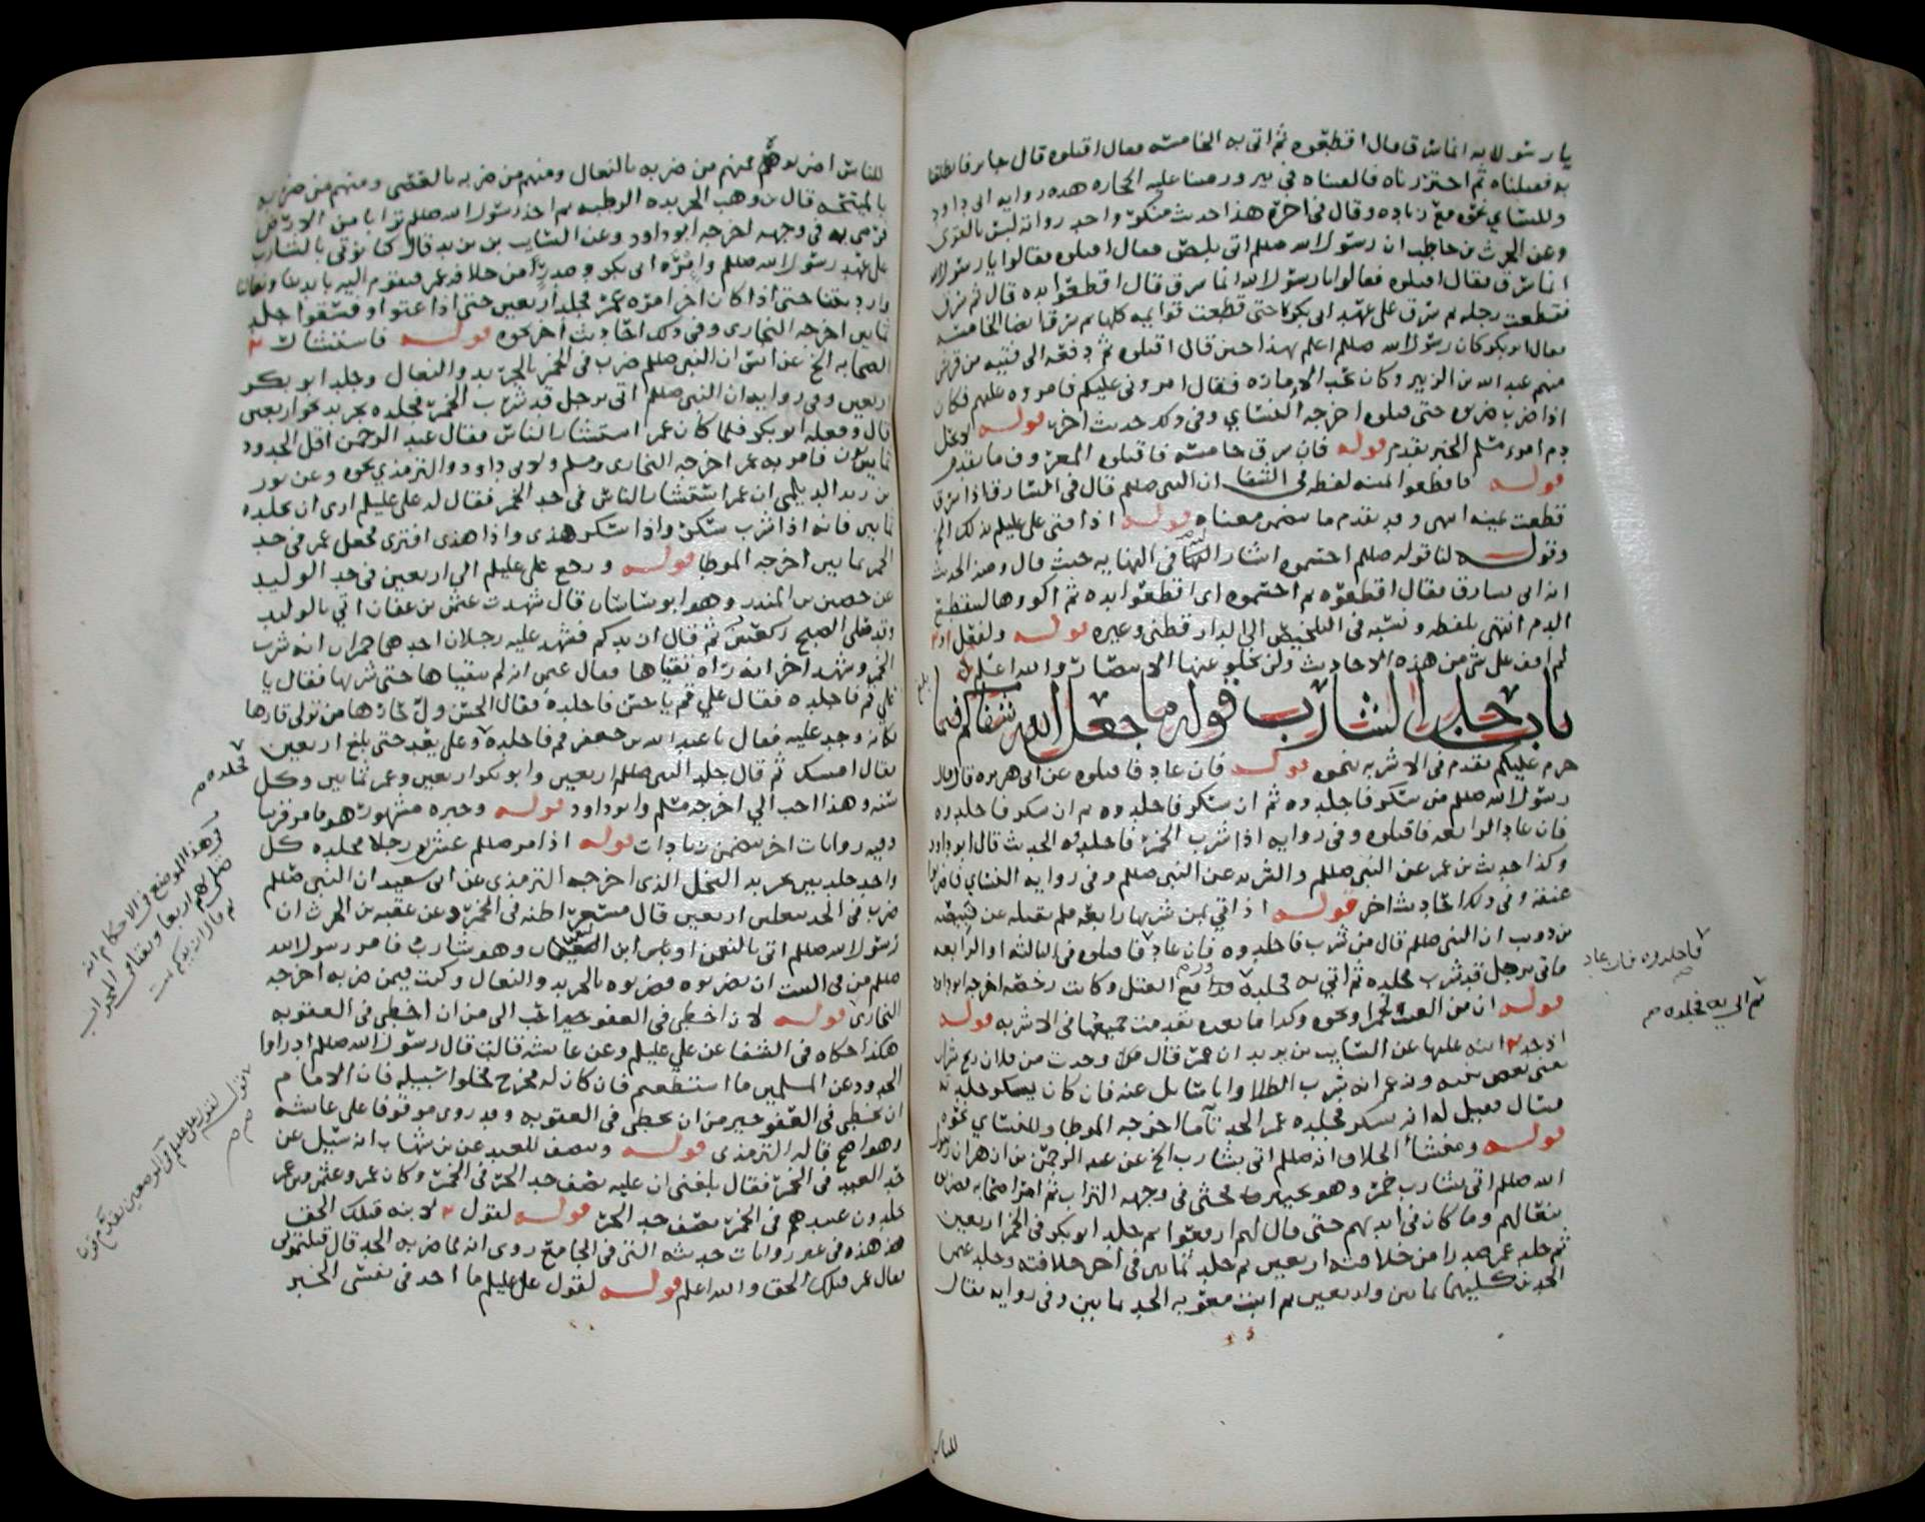 يا رسول الله انما سرق فقال اقطعوه ثم اتي به الخامسة فقال اقتلوه قال جابر فانطلقنا
به فقتلناه ثم اجتررناه فالقيناه في بير ورمينا عليه الحجارة هذه رواية ابي داود
وللنسائي نحوه مع زياده وقال في اخره هذا حديث منكر واحد رواته ليس بالقوي
وعن الحرث بن حاطب ان رسول الله صللم اتي بلص فقال اقتلوه فقالوا يا رسول الله
انما سرق فقال اقتلوه فقالوا يا رسول الله انما سرق قال اقطعوا يده قال ثم سرق
فقطعت رجله ثم سرق على عهد ابي بكر حتى قطعت قوايمه كلها ثم سرق ايضا الخامسة
فقال ابو بكر كان رسول الله صللم اعلم بهذا حين قال اقتلوه ثم دفعه الى فتية من قريش
منهم عبد الله بن الزبير وكان يحب الامارة فقال امروني عليكم فامروه عليهم فكان
اذا ضرب ضربوه حتى قتلوه اخرجه النسائي وفي ذلك حديث اخر قوله
دم امرء مسلم الخبر تقدم قوله فان سرق خامسة فاقتلوه المعروف ما تقدم
قوله فاقطعوا يمينه لفظه في الشفا ان النبي صللم قال في السارق اذا سرق
قطعت يمينه انتهى وقد تقدم ما يتضمن معناه قوله اذ افتى علي عليلم بذلك الخ
وقوله لنا قوله صللم احسموه اشار اليه في النهايه حيث قال ومنه الحديث
انه اتي بسارق فقال اقطعوه ثم احسموه اي اقطعوا يده ثم اكووها لينقطع
الدم انتهى بلفظه ونسبه في التلخيص الى الدارقطني وغيره قوله ولفعل
لم اقف على شي من هذه الاحاديث ولن يخلو عنها الاستبصار والله اعلم
باب حد الشارب قوله ما جعل الله شفاكم فيما
حرم عليكم تقدم في الاشربه نحوه قوله فان عاد فاقتلوه عن ابي هريرة قال قال
رسول الله صللم من سكر فاجلدوه ثم ان سكر فاجلدوه ثم ان سكر فاجلدوه
فان عاد الرابعه فاقتلوه وفي رواية اذا شرب الخمر فاجلدوه الحديث قال ابو داود
وكذا حديث بن عمر عن النبي صللم والشريد عن النبي صللم وفي رواية النسائي فاضربوا
عنقه وفي ذلك احاديث اخر قوله اذ اتي بمن شربها رابعة فلم يقتله عن قبيصة
بن ذويب ان النبي صللم قال من شرب فاجلدوه فان عاد فاقتلوه في الثالثة او الرابعة
فاتي برجل قد شرب فجلده ثم اتي به فجلده ورفع القتل وكانت رخصة اخرجه ابو داود
قوله ان من العنب لخمرا ونحوه وكذا ما بعده تقدمت جميعها في الاشربه قوله
اذ حد ابنه عليها عن السايب بن يزيد ان عمر قال وجدت من فلان ريح شراب
يعني بعض بنيه وزعم انه شرب الطلا وانا سائل عنه فان كان يسكر جلدته
فسال فقيل له انه يسكر فجلده عمر الحد تاما اخرجه الموطا وللنسائي نحوه
قوله ومنشأ الخلاف انه صللم اتي بشارب الخ عن عبد الرحمن بن ازهر ان رسول
الله صللم اتي بشارب خمر وهو بحنين فحثى في وجهه التراب ثم امر اصحابه فضربوه
بنعالهم وما كان في ايديهم حتى قال لهم ارفعوا ثم جلد ابو بكر في الخمر اربعين
ثم جلد عمر صدرا من خلافته اربعين ثم جلد ثمانين في اخر خلافته وجلد عثمن
الحدين كليهما ثمانين واربعين ثم اثبت معويه الحد ثمانين وفي رواية فقال
فاجلدوه فان عاد
ثم اتي به فجلده
للناس
للناس اضربوه فمنهم من ضربه بالنعال ومنهم من ضربه بالعصى ومنهم من ضربه
بالميتخه قال بن وهب الجريده الرطبه ثم اخذ رسول الله صللم ترابا من الارض
فرمى به في وجهه اخرجه ابو داود وعن السايب بن يزيد قال كنا نوتى بالشارب
على عهد رسول الله صللم وامرة ابي بكر وصدرا من خلافة عمر فنقوم اليه بايدينا ونعالنا
وارديتنا حتى اذا كان اخر امرة عمر فجلد اربعين حتى اذا عتوا وفسقوا جلد
ثمانين اخرجه البخاري وفي ذلك احاديث اخر نحوه قوله فاستشار
الصحابه الخ عن انس ان النبي صللم ضرب في الخمر بالجريد والنعال وجلد ابو بكر
اربعين وفي رواية ان النبي صللم اتي برجل قد شرب الخمر فجلده بجريد نحو اربعين
قال وفعله ابو بكر فلما كان عمر استشار الناس فقال عبد الرحمن اقل الحدود
ثمانون فامر به عمر اخرجه البخاري ومسلم ولابي داود والترمذي نحوه وعن ثور
بن زيد الديلمي ان عمر استشار الناس في حد الخمر فقال له علي عليلم ارى ان تجلده
ثمانين فانه اذا شرب سكر واذا سكر هذى واذا هذى افترى فجعل عمر في حد
الخمر ثمانين اخرجه الموطا قوله ورجع علي عليلم الى اربعين في حد الوليد
عن حصين بن المنذر وهو ابو ساسان قال شهدت عثمن بن عفان اتي بالوليد
وقد صلى الصبح ركعتين ثم قال ازيدكم فشهد عليه رجلان احدهما حمران انه شرب
الخمر وشهد اخر انه راه يتقياها فقال عثمن انه لم يتقياها حتى شربها فقال يا
علي قم فاجلده فقال علي قم يا حسن فاجلده فقال الحسن ول حارها من تولى قارها
فكانه وجد عليه فقال يا عبد الله بن جعفر قم فاجلده وعلي يعد حتى بلغ اربعين
فقال امسك ثم قال جلد النبي صللم اربعين وابو بكر اربعين وعمر ثمانين وكل
سنة وهذا احب الي اخرجه مسلم وابو داود قوله وخبره مشهور هو ما مر قريبا
وفيه روايات اخر تتضمن زيادات قوله اذ امر صللم عشرين رجلا فجلده كل
واحد جلدتين بجريد النخل الذي اخرجه الترمذي عن ابي سعيد ان النبي صللم
ضرب في الحد بنعلين اربعين قال مسعر اظنه في الخمر وعن عقبه بن الحرث ان
رسول الله صللم اتي بالنعمن او بابن النعيمان وهو شارب فامر رسول الله
صللم من في البيت ان يضربوه فضربوه بالجريد والنعال وكنت فيمن ضربه اخرجه
البخاري قوله لان اخطي في العفو خير احب الي من ان اخطي في العقوبه
هكذا حكاه في الشفا عن علي عليلم وعن عايشه قالت قال رسول الله صللم ادراوا
الحدود عن المسلمين ما استطعتم فان كان له مخرج فخلوا سبيله فان الامام
ان يخطي في العفو خير من ان يخطي في العقوبه وقد روي موقوفا على عايشه
وهو اصح قاله الترمذي قوله وينصف للعبد عن بن شهاب انه سئل عن
حد العبد في الخمر فقال بلغني ان عليه نصف حد الحر في الخمر وكان عمر وعثمن وبن عمر
يجلدون عبيدهم في الخمر نصف حد الحر قوله لقول لابنه قتلك الحق
هذه في غير روايات حديثه التي في الجامع روي انه لما ضربه الحد قال قتلتني
فقال عمر قتلك الحق والله اعلم قوله لقول علي عليلم ما احد في نفسي الخبر
فجلده
في هذا الموضع في الاحكام انه
صلى بهم اربعا
ثم قال ازيدكم